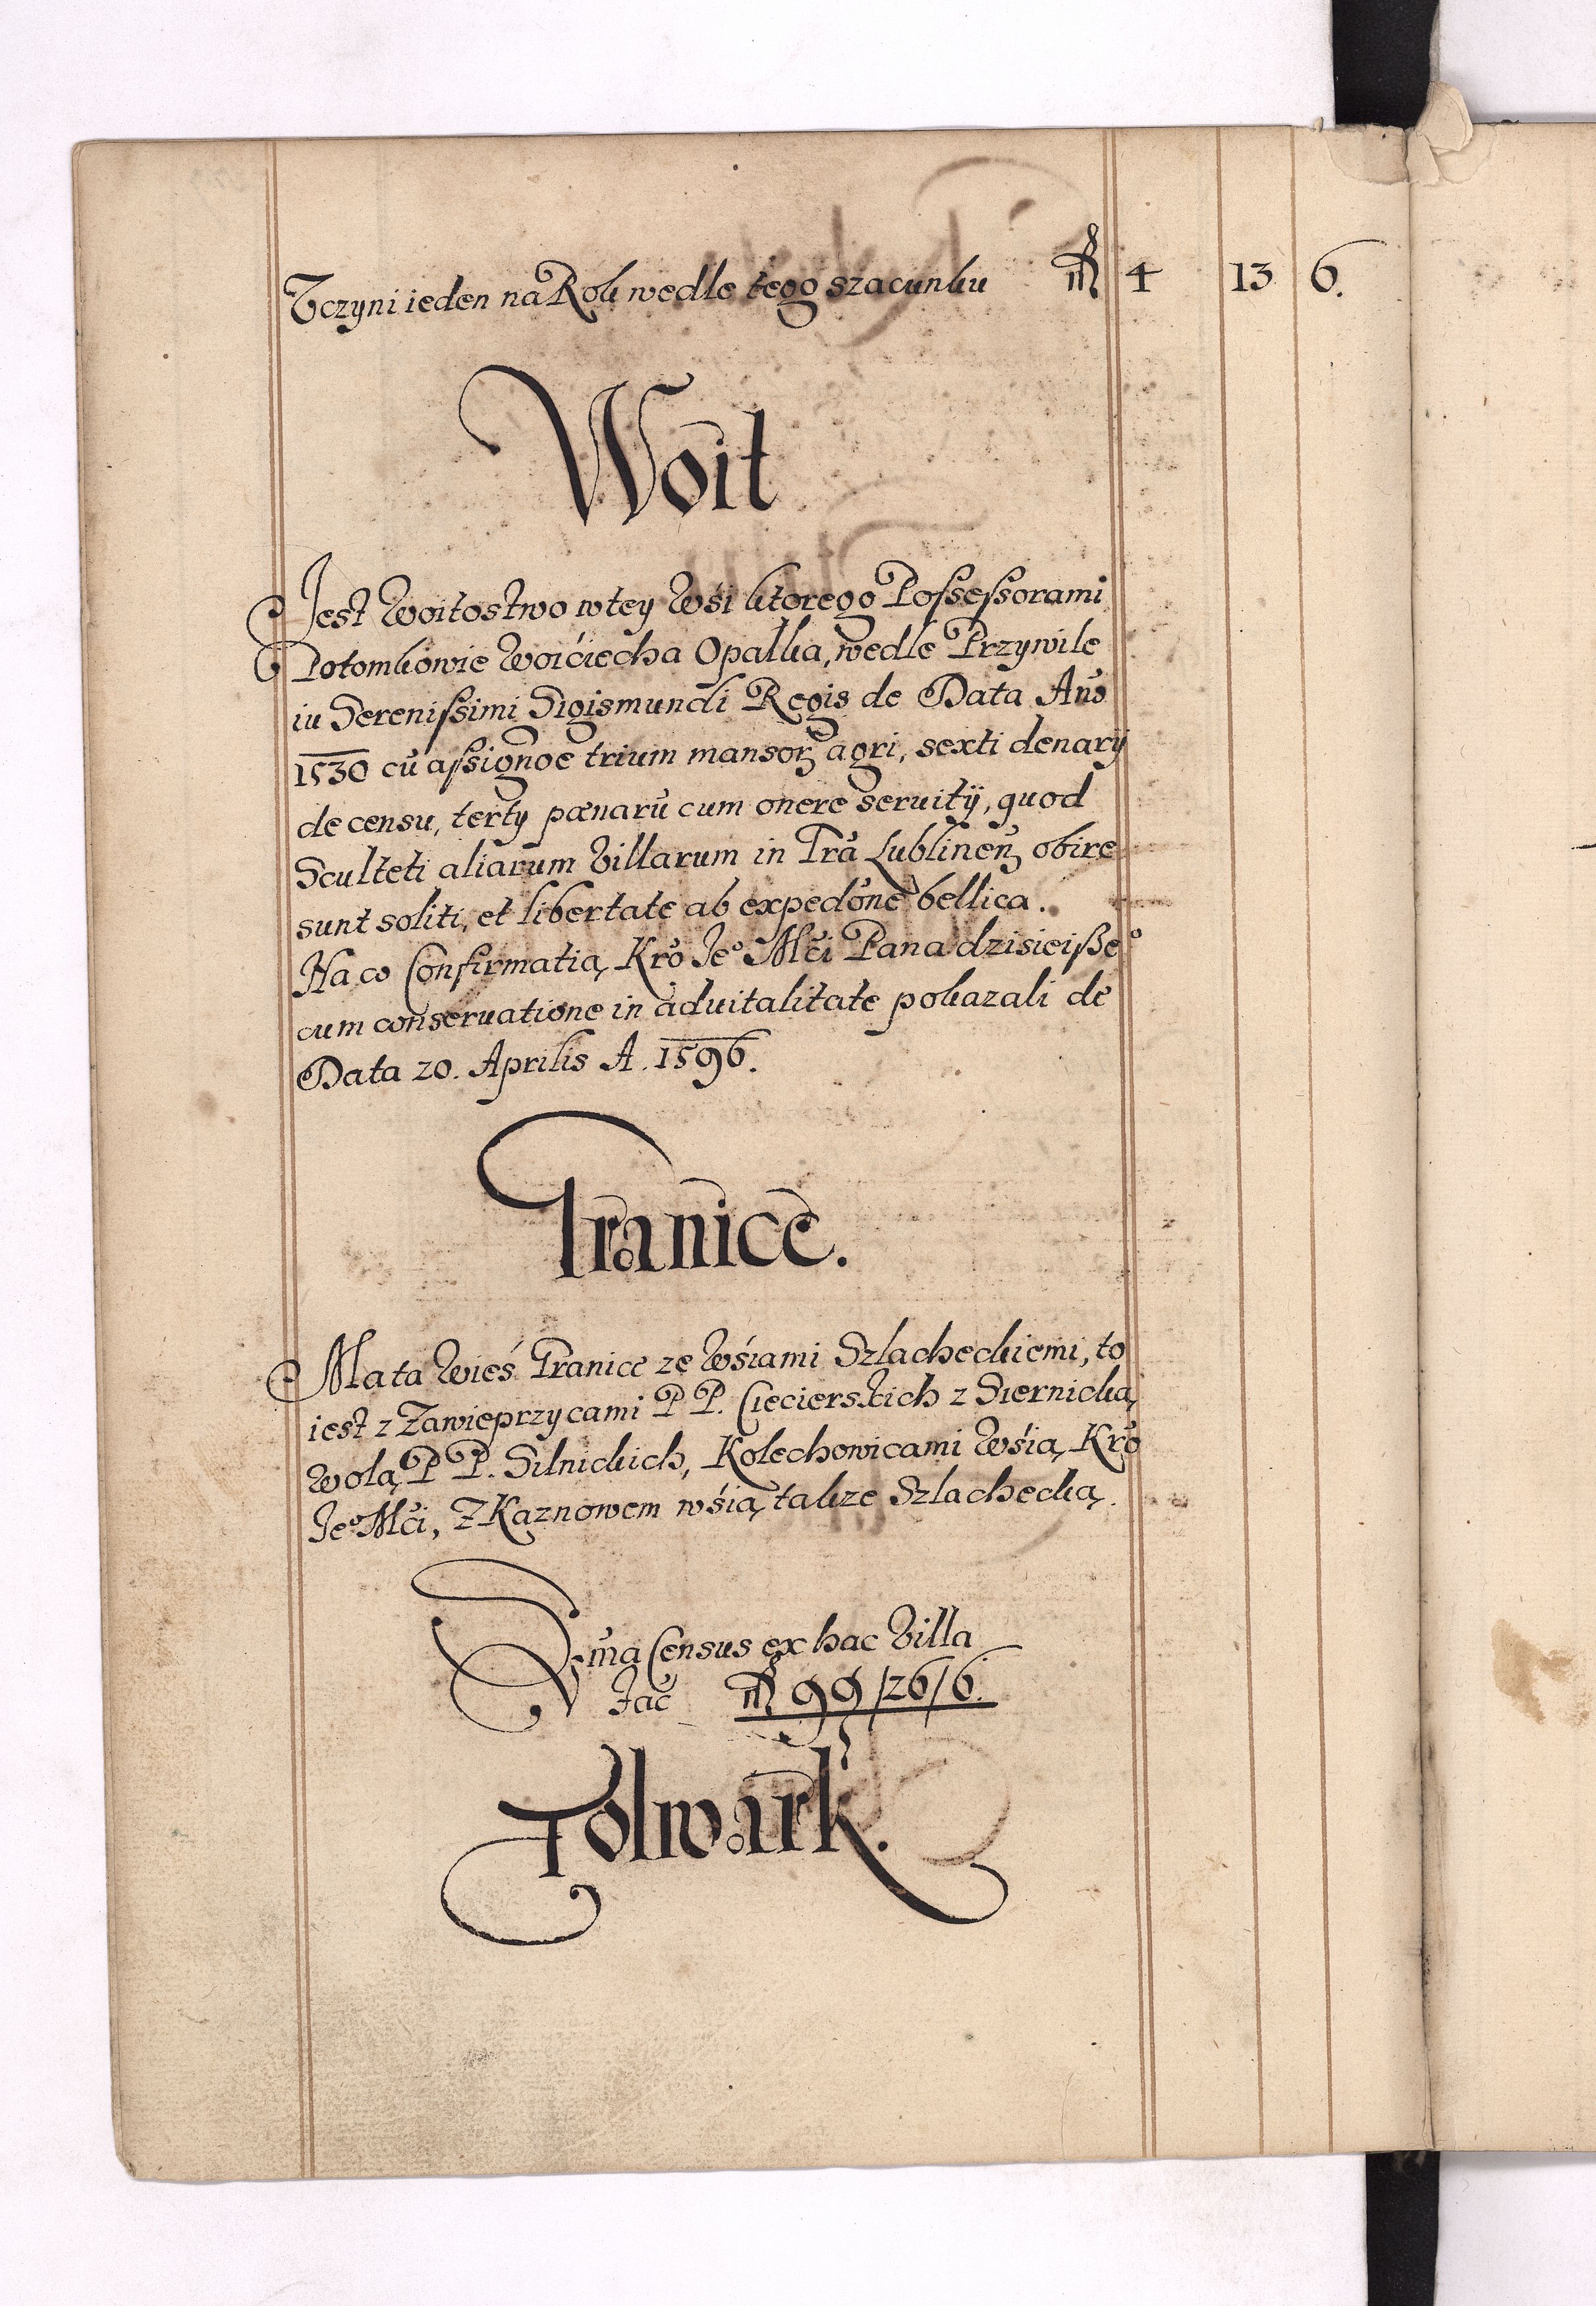 Vczyni ieden na Rok wedle tego szacunku fl 4 13 6.
Woit
Jest Woitostwo w tey Wśi ktorego Possessorami
Potomkowie Woićiecha Opalka, wedle Przywile
iu Serenissimi Sigismundi Regis de Data Ano
1530 cu assignoe trium mansorꝫ agri, sexti denarij
de censu, tertij pœnaru cum onere seruitij, quod
Sculteti aliarum Villarum in Tra Lublinenꝫ obire
sunt soliti, et libertate ab expedone bellica.
Na co Confirmatią Kro Jeº Mći Pana dzisieißeº
cum conseruatione in aduitalitate pokazali de
Data 20. Aprilis A. 1596.
Granice.
Ma ta Wieś Granice ze Wśiami Szlacheckiemi, to
iest z Zawieprzycami P P. Ciecierskich z Siernicką
Wolą P P. Silnickich, Kolechowicami Wśią Kro
Jeº Mći, Z Kaznowem wśią takze Szlachecką.
Suma Census ex hac Villa
Fac fl 99/26/6.
Folwark.